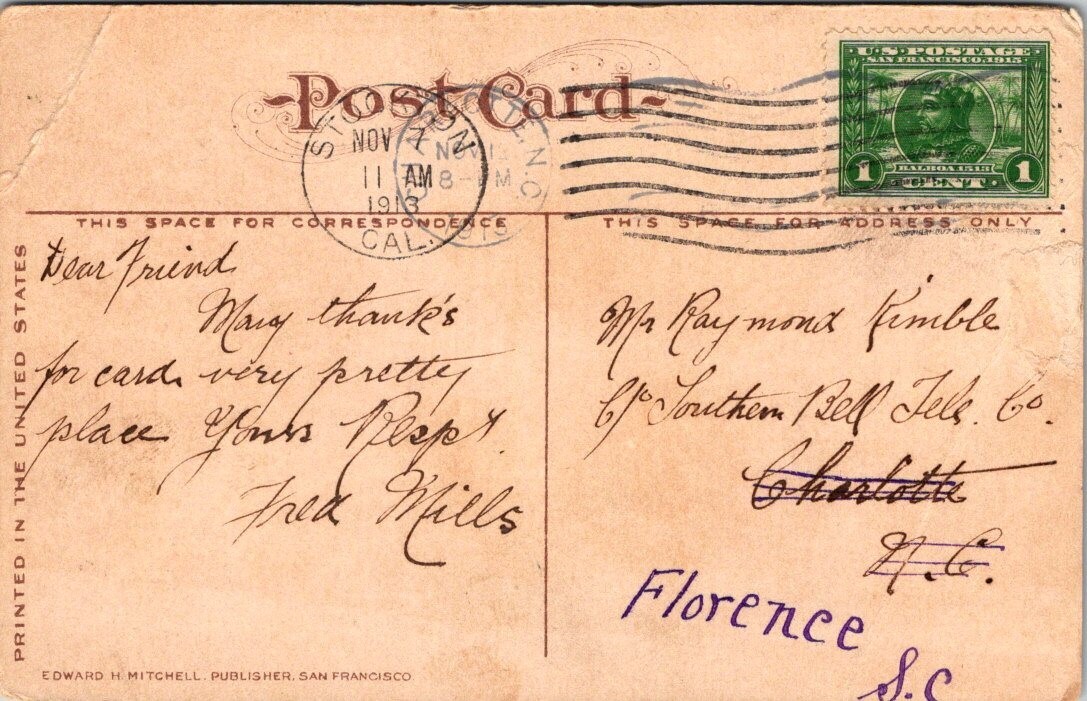 Post Card
U.S. POSTAGE
SAN FRANCISCO, 1915
BALBOA 1513
1 CENT. 1
NOV
11 AM
1913
CAL.
NOV
8- M
THIS SPACE FOR CORRESPONDENCE
THIS SPACE FOR ADDRESS ONLY
PRINTED IN THE UNITED STATES
Dear Friend
Many thank's
for card. very pretty
place Yours Resp't.
Fred Mills
Mr Raymond Kimble
C/o Southern Bell Tele. Co.
Charlotte
N.C.
Florence
S.C
EDWARD H. MITCHELL. PUBLISHER, SAN FRANCISCO